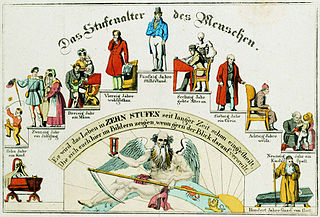 Das Stufenalter des Menschen.
Zehn Jahr
ein Kind.
Zwanzig Jahr
ein Jüngling.
Dreisig Jahr
ein Mann.
Vierzig Jahr
wohlgethan.
Fünfzig Jahre
Stillestand.
Sechzig Jahr
gehts Alter an.
Siebzig Jahr
ein Greis.
Achtzig Jahr
weiss.
Neunzig Jahr
Kinder Spott.
Hundert Jahre Gnad von Gott.
Es wird das Leben in ZEHN STUFEN seit langer Zeit schon
die sich auch hier im Bildern zeigen, wenn